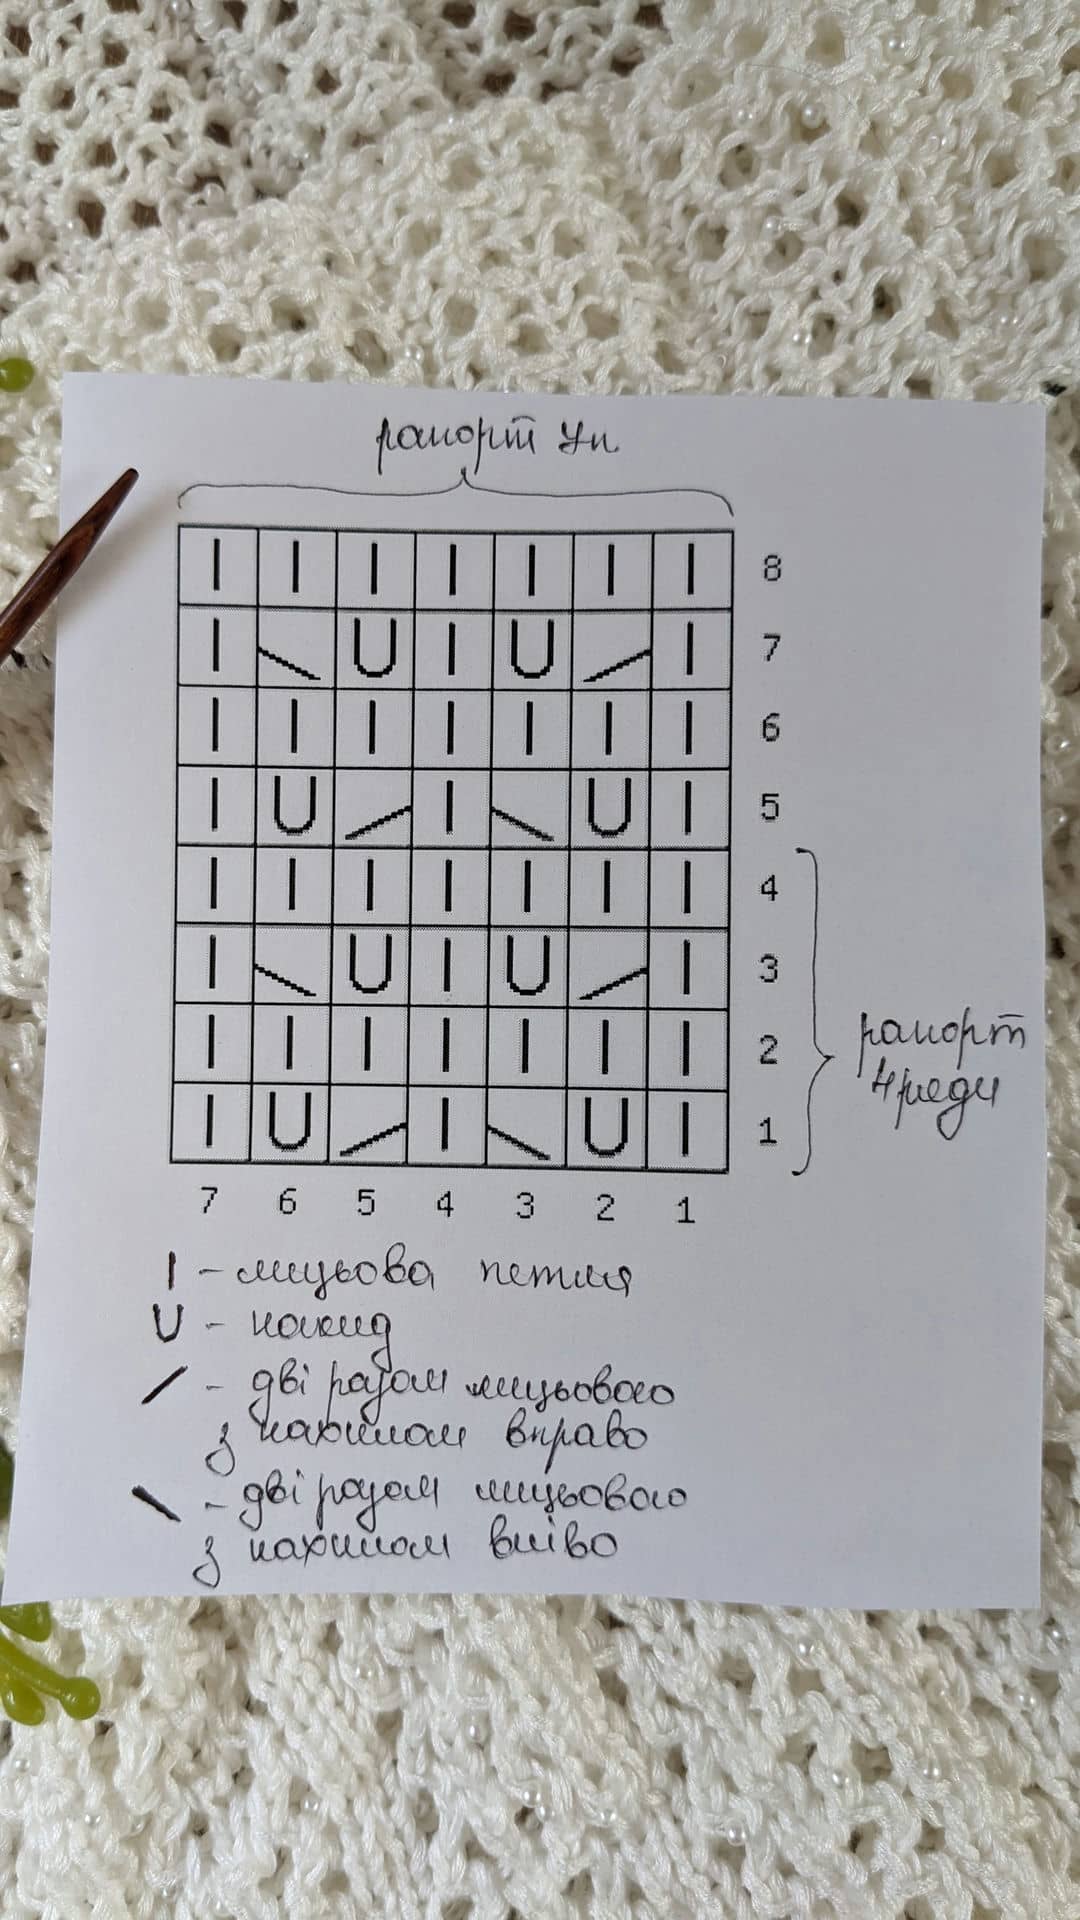 рапорт 7п
| | | | | | | 8
| \ U | U / | 7
| | | | | | | 6
| U / | \ U | 5
| | | | | | | 4
| \ U | U / | 3
| | | | | | | 2
| U / | \ U | 1
рапорт
4 ряди
7 6 5 4 3 2 1
| - лицьова петля
U - накид
/ - дві разом лицьовою
з нахилом вправо
\ - дві разом лицьовою
з нахилом вліво